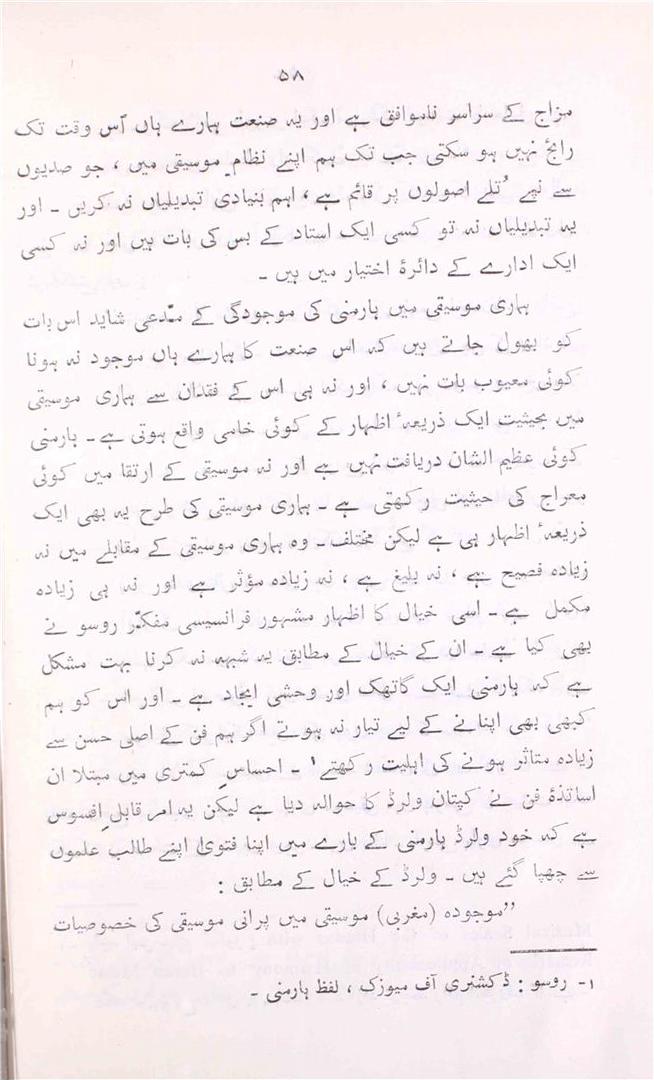 ۵۸
مزاج کے سراسر ناموافق ہے اور یہ صنعت ہمارے ہاں اُس وقت تک
رائج نہیں ہو سکتی جب تک ہم اپنے نظامِ موسیقی میں ، جو صدیوں
سے نپے تُلے اصولوں پر قائم ہے ، اہم بنیادی تبدیلیاں نہ کریں ۔ اور
یہ تبدیلیاں نہ تو کسی ایک استاد کے بس کی بات ہیں اور نہ کسی
ایک ادارے کے دائرۂ اختیار میں ہیں ۔
ہماری موسیقی میں ہارمنی کی موجودگی کے مدّعی شاید اس بات
کو بھول جاتے ہیں کہ اس صنعت کا ہمارے ہاں موجود نہ ہونا
کوئی معیوب بات نہیں ، اور نہ ہی اس کے فقدان سے ہماری موسیقی
میں بحیثیت ایک ذریعہٴ اظہار کے کوئی خامی واقع ہوتی ہے ۔ ہارمنی
کوئی عظیم الشان دریافت نہیں ہے اور نہ موسیقی کے ارتقا میں کوئی
معراج کی حیثیت رکھتی ہے ۔ ہماری موسیقی کی طرح یہ بھی ایک
ذریعہٴ اظہار ہی ہے لیکن مختلف ۔ وہ ہماری موسیقی کے مقابلے میں نہ
زیادہ فصیح ہے ، نہ بلیغ ہے ، نہ زیادہ مؤثر ہے اور نہ ہی زیادہ
مکمل ہے ۔ اسی خیال کا اظہار مشہور فرانسیسی مفکّر روسو نے
بھی کیا ہے ۔ ان کے خیال کے مطابق یہ شبہ نہ کرنا بہت مشکل
ہے کہ ہارمنی ایک گاتھک اور وحشی ایجاد ہے ۔ اور اس کو ہم
کبھی بھی اپنانے کے لیے تیار نہ ہوتے اگر ہم فن کے اصلی حسن سے
زیادہ متاثر ہونے کی اہلیت رکھتے۱ ۔ احساسِ کمتری میں مبتلا ان
اساتذۂ فن نے کپتان ولرڈ کا حوالہ دیا ہے لیکن یہ امر قابلِ افسوس
ہے کہ خود ولرڈ ہارمنی کے بارے میں اپنا فتویٰ اپنے طالب علموں
سے چھپا گئے ہیں ۔ ولرڈ کے خیال کے مطابق :
”موجودہ (مغربی) موسیقی میں پرانی موسیقی کی خصوصیات
۱- روسو : ڈکشنری آف میوزک ، لفظ ہارمنی ۔